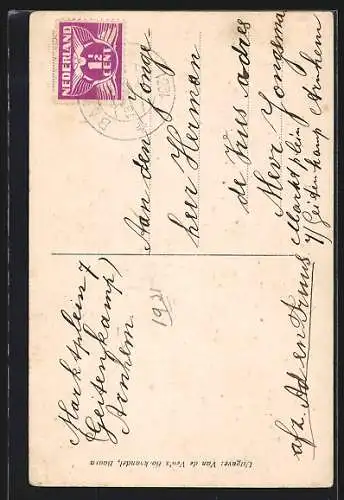 NEDERLAND
1½
CENT
Aan den Jonge-
heer Herman
de Kus adres
Mevr Jongsma
Marktplein
Geitenkamp Arnhem
afz. Ad en
Marktplein 7
(Geitenkamp)
Arnhem
1931
Uitgave: Van de Ven's Boekhandel, Baarn